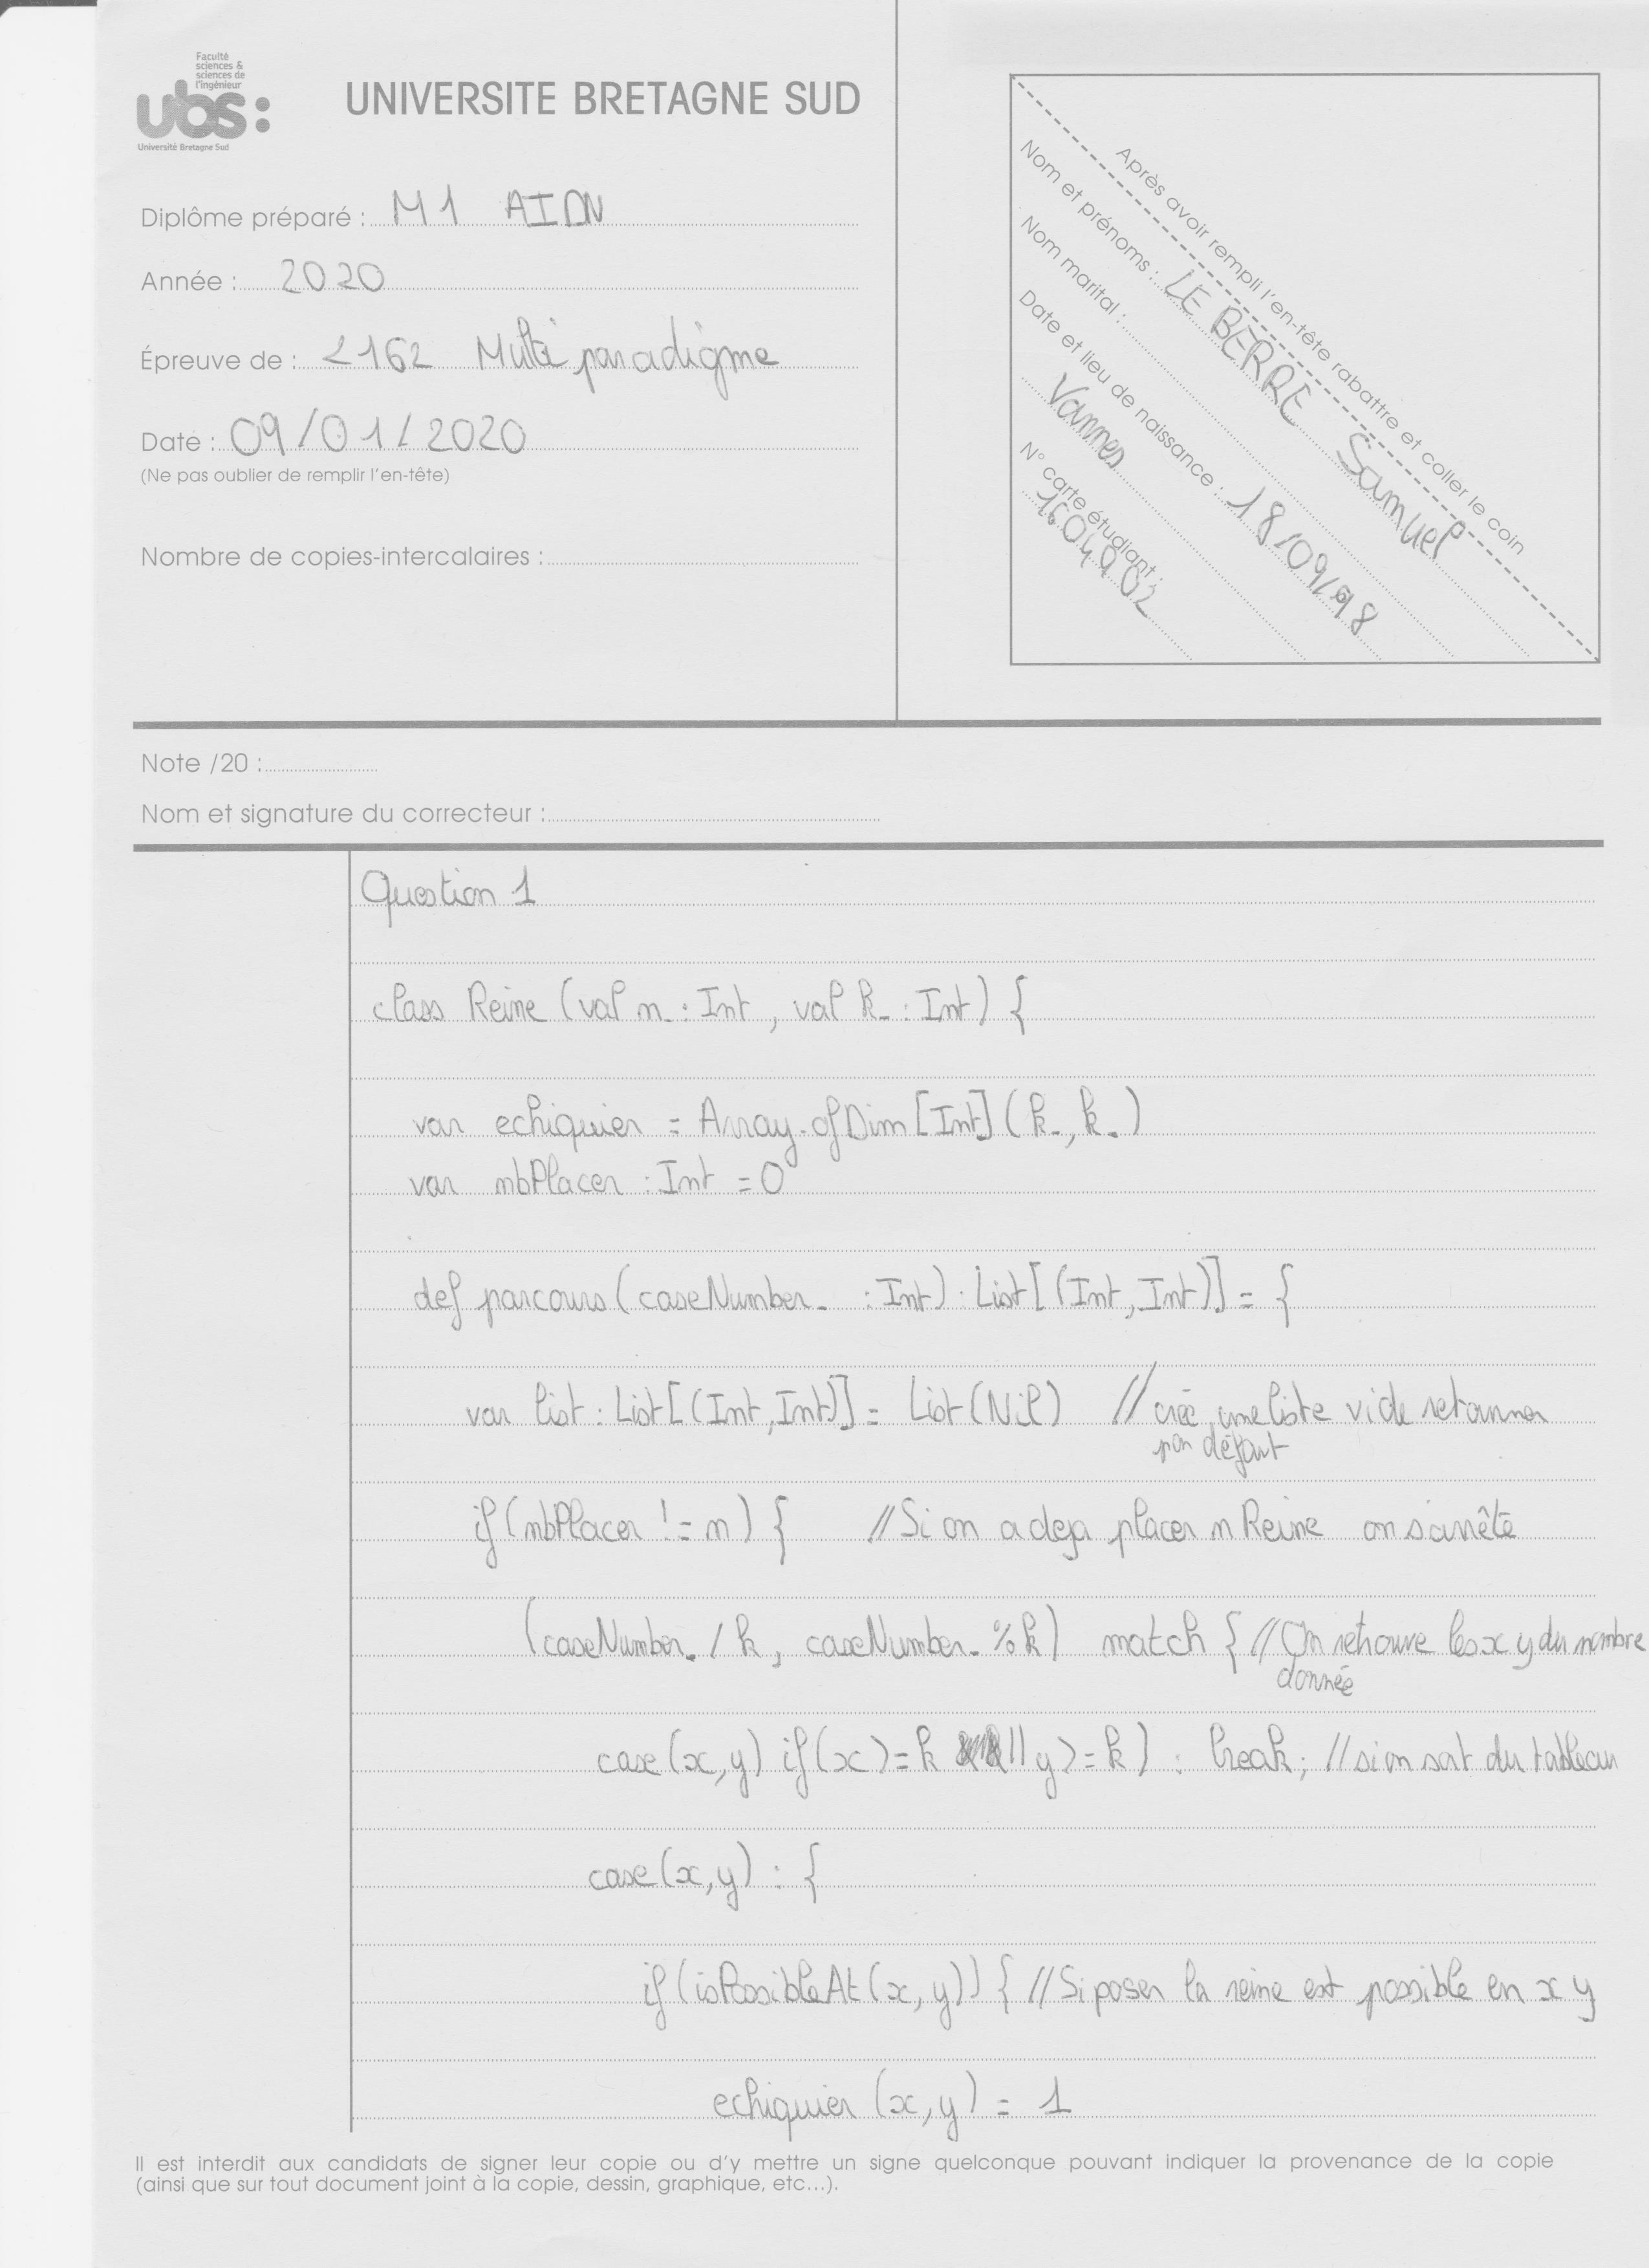 Faculté
sciences &
sciences de
l'ingénieur
ubs:
Université Bretagne Sud
UNIVERSITE BRETAGNE SUD
Diplôme préparé : M1 AIDN
Année : 2020
Épreuve de : 2162 Multi paradigme
Date : 09/01/2020
(Ne pas oublier de remplir l'en-tête)
Nombre de copies-intercalaires :
Après avoir rempli l'en-tête rabattre et coller le coin
Nom et prénoms : LE BERRE Samuel
Nom marital :
Date et lieu de naissance : 18/09/98
Vannes
N° carte étudiant :
Note /20 :
Nom et signature du correcteur :
Question 1
class Reine (val n_ : Int , val k_ : Int) {
var echiquier = Array.ofDim [Int] (k_, k_)
var nbPlacer : Int = 0
def parcours (caseNumber_ : Int) : List[(Int, Int)] = {
var list : List[(Int, Int)] = List(Nil) // crée une liste vide retourner
par défaut
if (nbPlacer != n) { // Si on a deja placer n Reine on s'arrête
(caseNumber_ / k, caseNumber_ % k) match { // On retrouve les x y du nombre
donnée
case (x, y) if (x >= k || y >= k) : break; // si on sort du tableau
case (x, y) : {
if (isPossibleAt (x, y)) { // Si poser la reine est possible en x y
echiquier (x, y) = 1
Il est interdit aux candidats de signer leur copie ou d'y mettre un signe quelconque pouvant indiquer la provenance de la copie
(ainsi que sur tout document joint à la copie, dessin, graphique, etc...).